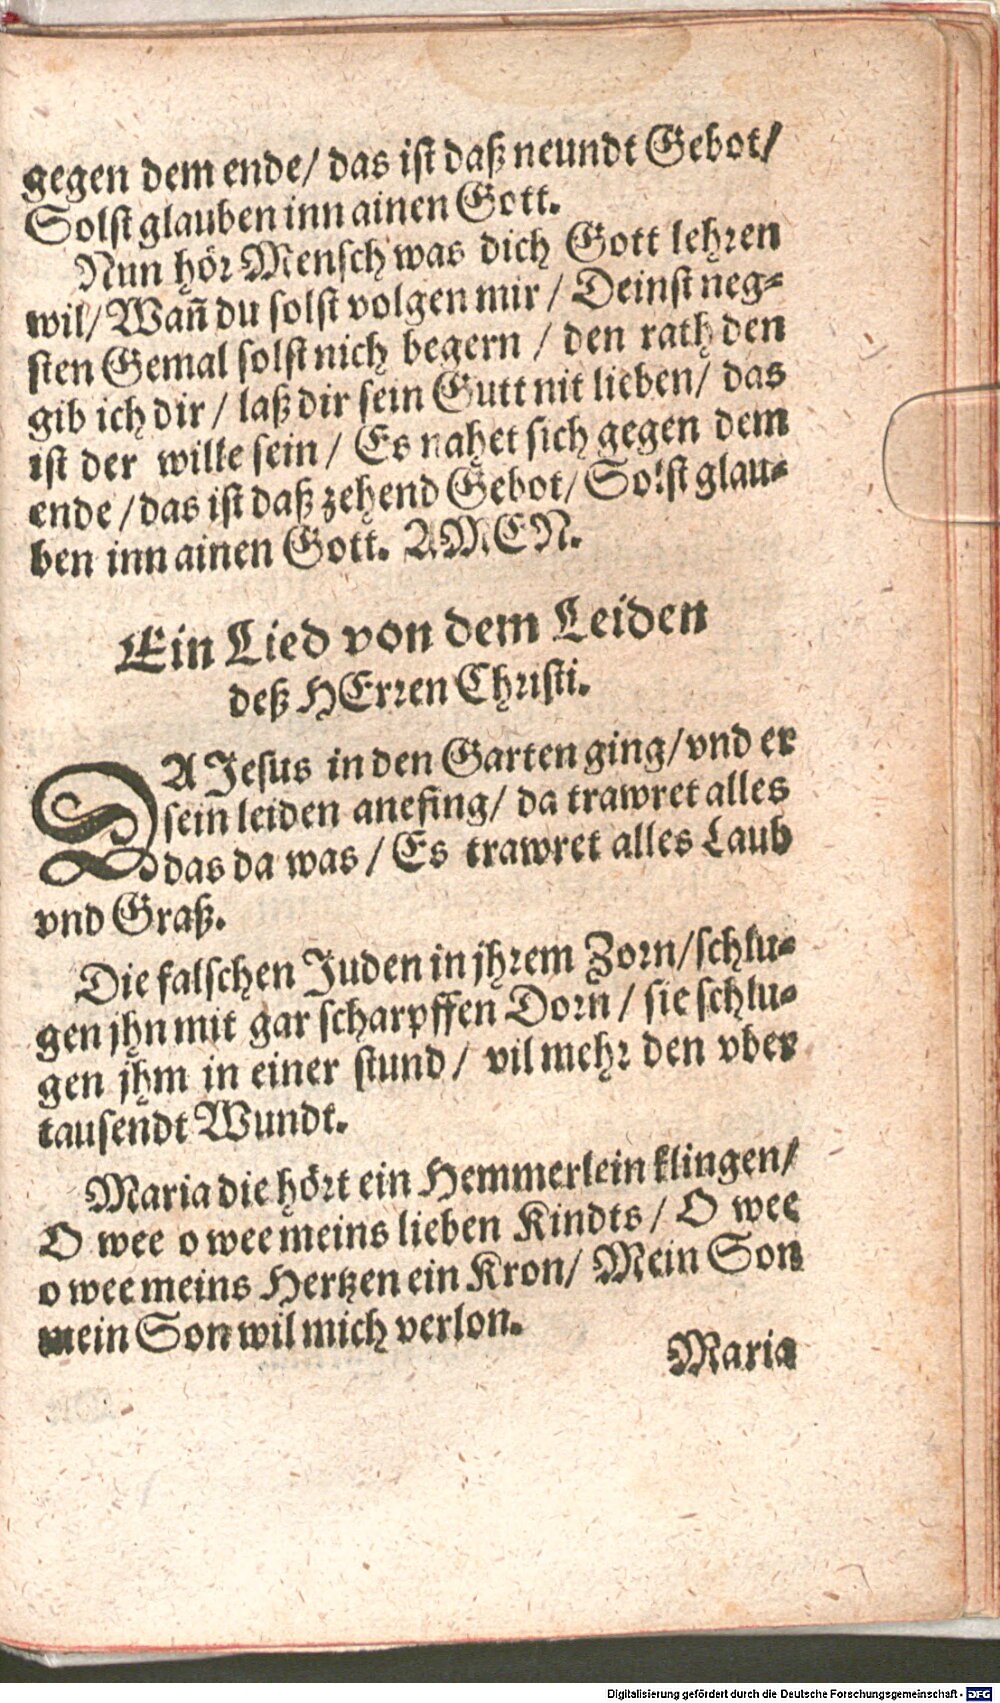 gegen dem ende/ das ist daß neundt Gebot/
Solst glauben inn ainen Gott.
Nun hör Mensch was dich Gott lehren
wil/ Wañ du solst volgen mir / Deinst neg-
sten Gemal solst nich begern / den rath den
gib ich dir / laß dir sein Gutt nit lieben/ das
ist der wille sein / Es nahet sich gegen dem
ende / das ist daß zehend Gebot/ Solst glau-
ben inn ainen Gott. AMEN.
Ein Lied von dem Leiden
deß HErren Christi.
DA Jesus in den Garten ging/ vnd er
sein leiden anefing/ da trawret alles
das da was / Es trawret alles Laub
vnd Graß.
Die falschen Juden in jhrem Zorn/ schlu-
gen jhn mit gar scharpffen Dorn / sie schlu-
gen jhm in einer stund / vil mehr den vber
tausendt Wundt.
Maria die hört ein Hemmerlein klingen/
O wee o wee meins lieben Kindts / O wee
o wee meins Hertzen ein Kron/ Mein Son
mein Son wil mich verlon.
Maria
Digitalisierung gefördert durch die Deutsche Forschungsgemeinschaft - DFG